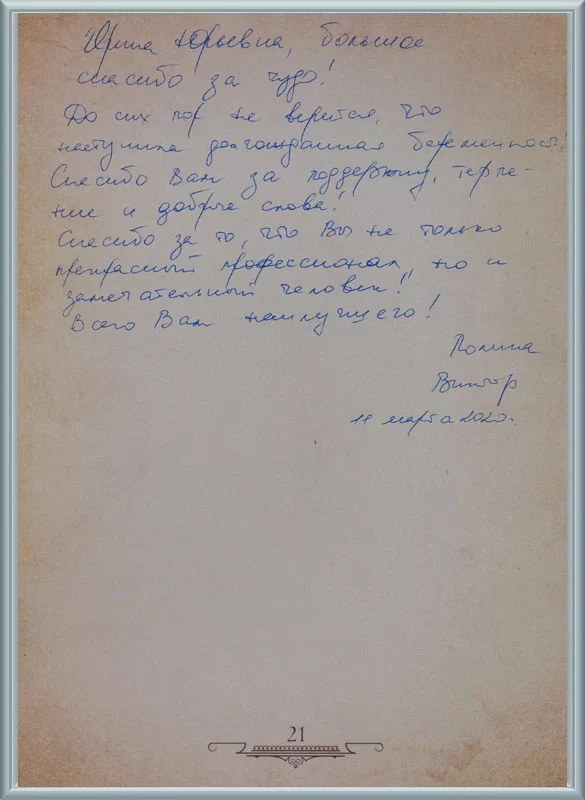 Ирина Юрьевна, большое
спасибо за чудо!
До сих пор не верится, что
наступила долгожданная беременность!
Спасибо Вам за поддержку, терпе-
ние и добрые слова!
Спасибо за то, что Вы не только
прекрасный профессионал, но и
замечательный человек!
Всего Вам наилучшего!
Полина
Виктор
11 марта 2020.
21